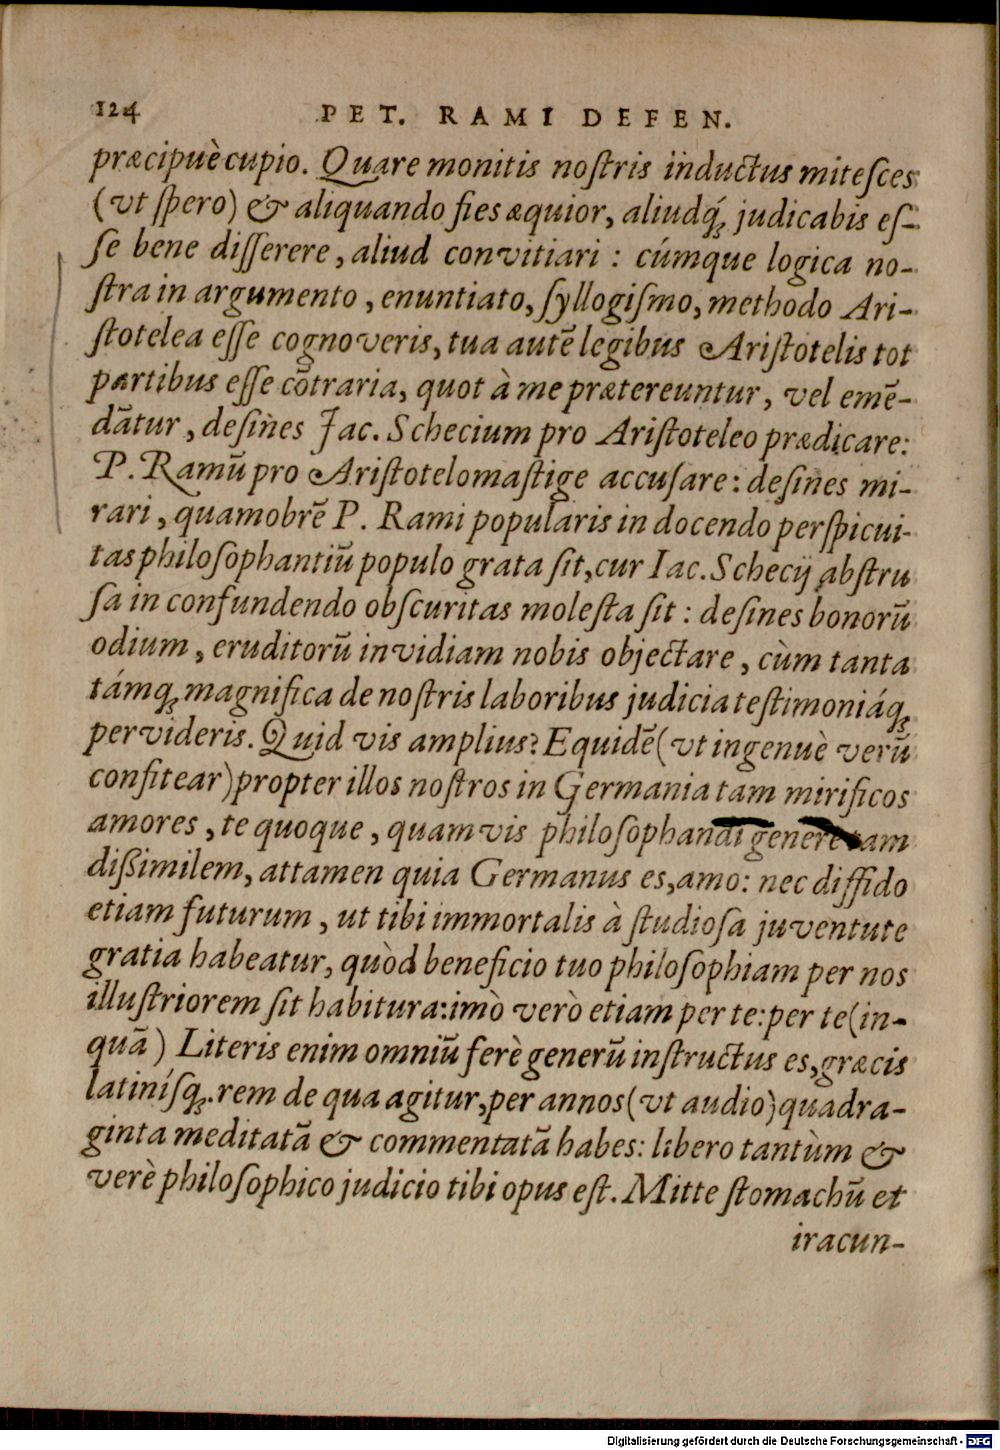 124
PET. RAMI DEFEN.
præcipuè cupio. Quare monitis noſtris inductus miteſces
(vt ſpero) & aliquando fies æquior, aliudq́; judicabis eſ-
ſe bene diſſerere, aliud convitiari : cúmque logica no-
ſtra in argumento, enuntiato, ſyllogiſmo, methodo Ari-
ſtotelea eſſe cognoveris, tua autē legibus Ariſtotelis tot
partibus eſſe cōtraria, quot à me prætereuntur, vel emē-
dātur, deſines Jac. Schecium pro Ariſtoteleo prædicare:
P. Ramū pro Ariſtotelomaſtige accuſare: deſines mi-
rari, quamobrē P. Rami popularis in docendo perſpicui-
tas philoſophantiū populo grata ſit, cur Iac. Schecij abſtru
ſa in confundendo obſcuritas moleſta ſit : deſines bonorū
odium, eruditorū invidiam nobis objectare, cùm tanta
támq; magnifica de noſtris laboribus judicia teſtimoniáq;
pervideris. Quid vis amplius? Equidē (vt ingenuè verū
confitear) propter illos noſtros in Germania tam mirificos
amores, te quoque, quamvis philoſophandi genere tam
dißimilem, attamen quia Germanus es, amo: nec diffido
etiam futurum, ut tibi immortalis à ſtudioſa juventute
gratia habeatur, quòd beneficio tuo philoſophiam per nos
illuſtriorem ſit habitura: imò verò etiam per te: per te (in-
quā) Literis enim omniū ferè generū inſtructus es, græcis
latiníſq;. rem de qua agitur, per annos (vt audio) quadra-
ginta meditatā & commentatā habes: libero tantùm &
verè philoſophico judicio tibi opus eſt. Mitte ſtomachū et
iracun-
Digitalisierung gefördert durch die Deutsche Forschungsgemeinschaft - DFG